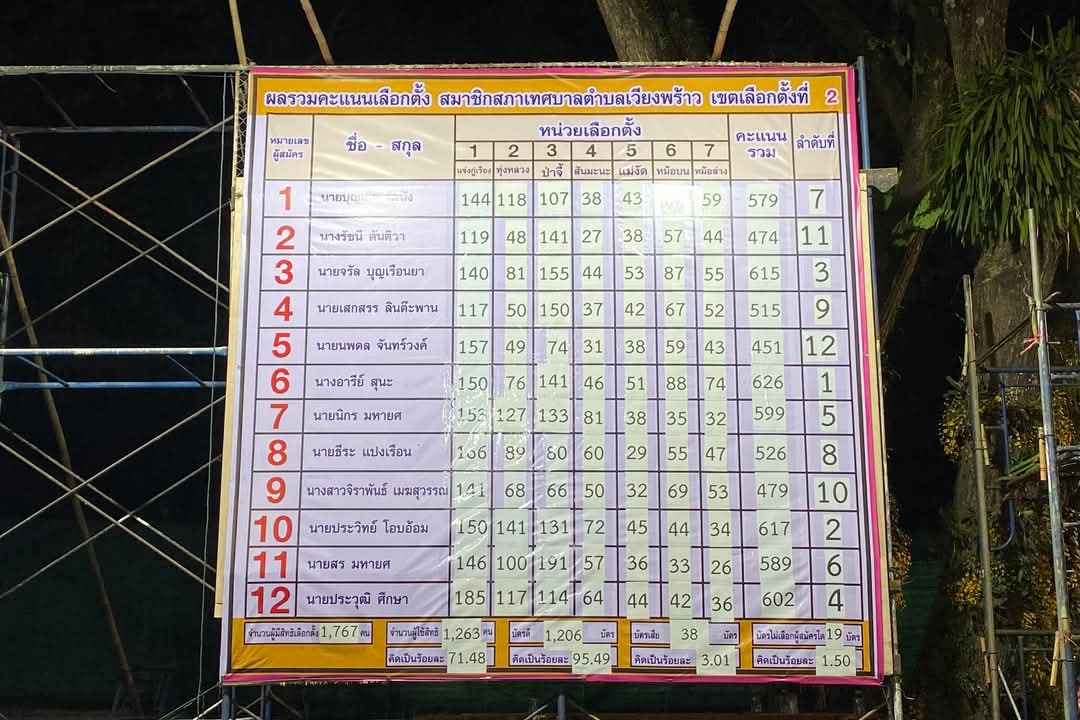 ผลรวมคะแนนเลือกตั้ง สมาชิกสภาเทศบาลตำบลเวียงพร้าว เขตเลือกตั้งที่ 2
หมายเลขผู้สมัคร ชื่อ - สกุล หน่วยเลือกตั้ง คะแนนรวม ลำดับที่
1 2 3 4 5 6 7
แจ่งกู่เรือง ทุ่งหลวง ป่าจี้ สันมะนะ แม่งัด หม้อบน หม้อล่าง
1 144 118 107 38 43 59 579 7
2 นางรัชนี ตันติวา 119 48 141 27 38 57 44 474 11
3 นายจรัล บุญเรือนยา 140 81 155 44 53 87 55 615 3
4 นายเสกสรร ลินต๊ะพาน 117 50 150 37 42 67 52 515 9
5 นายนพดล จันทร์วงค์ 157 49 74 31 38 59 43 451 12
6 นางอารีย์ สุนะ 150 76 141 46 51 88 74 626 1
7 นายนิกร มหายศ 153 127 133 81 38 35 32 599 5
8 นายธีระ แปงเรือน 166 89 80 60 29 55 47 526 8
9 นางสาวจิราพันธ์ เมฆสุวรรณ 141 68 66 50 32 69 53 479 10
10 นายประวิทย์ โอบอ้อม 150 141 131 72 45 44 34 617 2
11 นายสร มหายศ 146 100 191 57 36 33 26 589 6
12 นายประวุฒิ ศึกษา 185 117 114 64 44 42 36 602 4
จำนวนผู้มีสิทธิเลือกตั้ง 1,767 คน จำนวนผู้ใช้สิทธิ 1,263 คน บัตรดี 1,206 บัตร บัตรเสีย 38 บัตร บัตรไม่เลือกผู้สมัครใด 19 บัตร
คิดเป็นร้อยละ 71.48 คิดเป็นร้อยละ 95.49 คิดเป็นร้อยละ 3.01 คิดเป็นร้อยละ 1.50